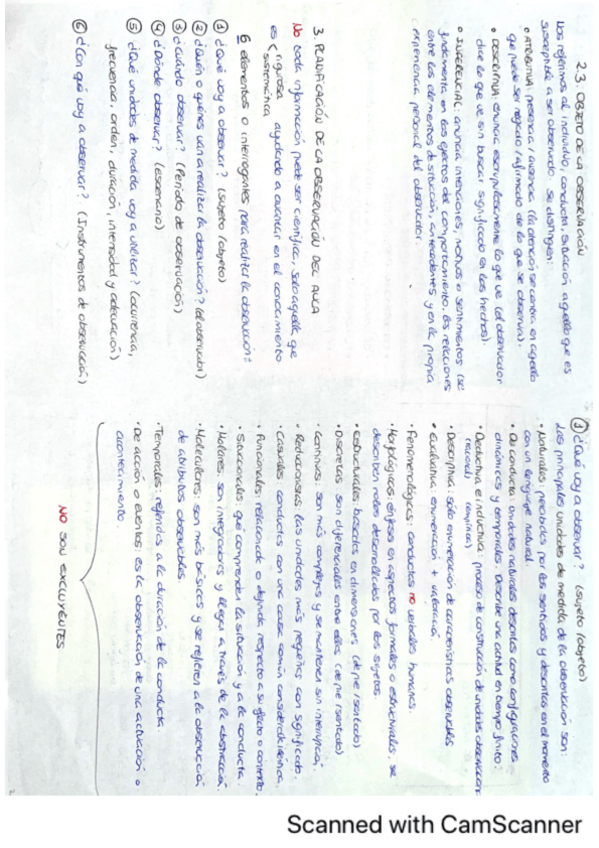 2.3. OBJETO DE LA OBSERVACIÓN
Nos referimos al individuo, conducta, situación aquello que es
susceptible a ser observado. Se distinguen:
• ATRIBUTIVA: presencia/ausencia (la atención se centra en aquello
que puede ser negado/afirmado de lo que se observa).
• DESCRIPTIVA: enuncia escrupulosamente lo que ve (el observador
dice lo que ve sin buscar significado en los hechos).
• INFERENCIAL: anuncia intenciones, motivos o sentimientos (se
fundamenta en los efectos del comportamiento, las relaciones
entre los elementos de situación, antecedentes y en la propia
experiencia personal del observador.
3. PLANIFICACIÓN DE LA OBSERVACIÓN DEL AULA
No toda información puede ser científica. Solo aquella que
es rigurosa ayudando a avanzar en el conocimiento
sistemática
6 elementos o interrogantes para realizar la observación:
① ¿Qué voy a observar? (sujeto/objeto)
② ¿Quién o quiénes van a realizar la observación? (el observador)
③ ¿Cuándo observar? (Periodo de observación)
④ ¿Dónde observar? (escenario)
⑤ ¿Qué unidades de medida voy a utilizar? (ocurrencia,
frecuencia, orden, duración, intensidad y adecuación)
⑥ ¿Con qué voy a observar? (Instrumentos de observación)
① ¿Qué voy a observar? (sujeto/objeto)
Las principales unidades de medida de la observación son:
• Naturales: percibidas por los sentidos y descritas en el momento
con un lenguaje natural.
• De conducta: unidades naturales descritas como configuraciones
dinámicas y temporales. Describe una actitud en tiempo finito.
• Deductiva e inductiva: proceso de construcción de modelos observacion
(teorías) (empírica)
• Descriptiva: sólo enumeración de características observables
• Evaluativa: enumeración + valoración.
• Fenomenológicas: conductas no verbales humanas.
• Morfológicas: énfasis en aspectos formales o estructurales, se
describen roles desarrollados por los sujetos.
• Estructurales: basadas en dimensiones (de pie/sentado)
• Discretas: son diferenciales entre ellas (de pie/sentado)
• Continuas: son más complejas y se mantienen sin interrupción.
• Reduccionistas: las unidades más pequeñas con significado.
• Causales: conductas con una causa común considerada única.
• Funcionales: relacionada o dejada respecto a su efecto o contexto.
• Situacionales: que comprenden la situación y a la conducta.
• Molares: son integradoras y llega a través de la abstracción.
• Moleculares: son más básicas y se refieren a la observación
de atributos observables.
• Temporales: referidas a la duración de la conducta.
• De acción o eventos: es la observación de una activación o
acontecimiento.
NO SON EXCLUYENTES
Scanned with CamScanner